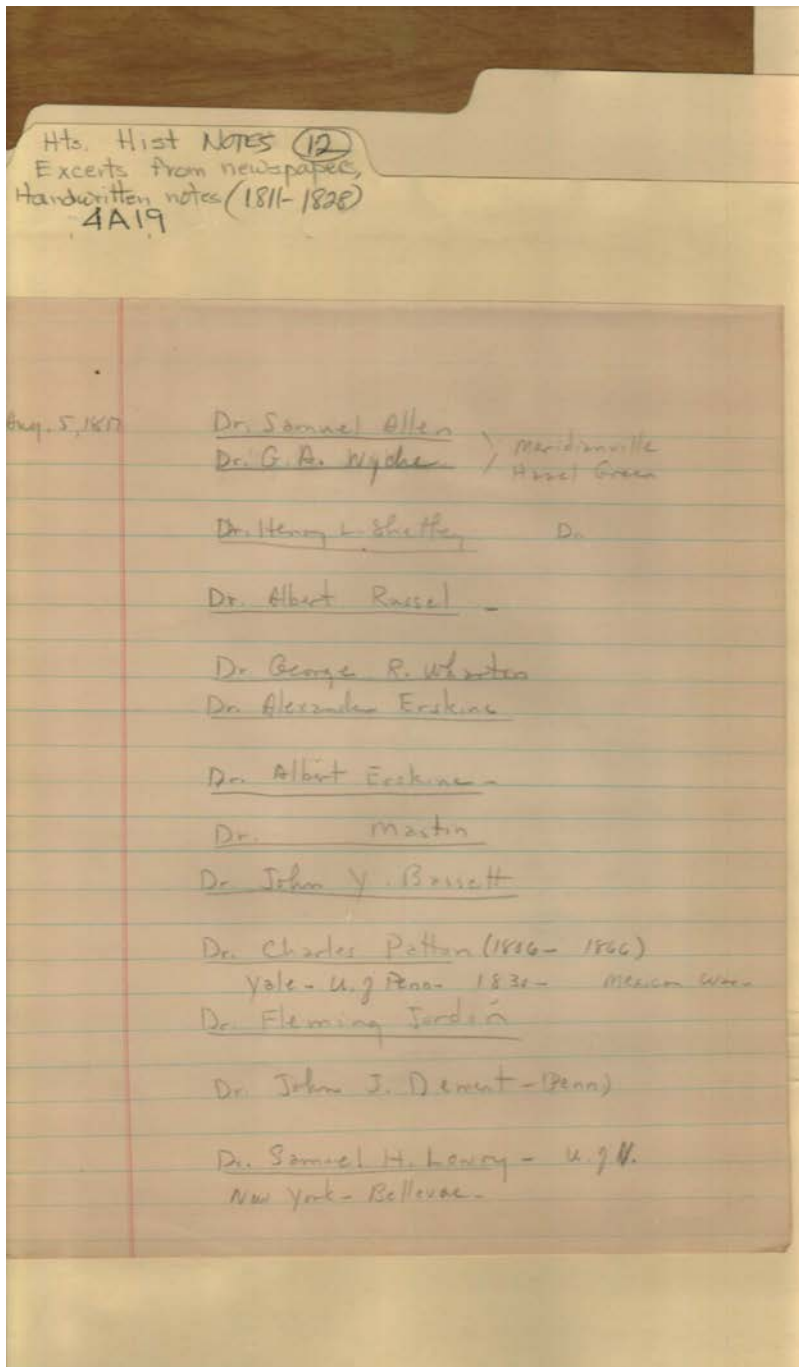 Hts. Hist NOTES 12
Excerts from newspapers,
Handwritten notes (1811-1828)
4A19
Aug. 5, 1817 Dr. Samuel Allen Meridianville
Dr. G. A. Wyche Hazel Green
Dr. Henry L. Sheffey Do
Dr. Albert Russel -
Dr George R. Wharton
Dr. Alexander Erskine
Dr. Albert Erskine -
Dr. Martin
Dr John Y. Bassett
Dr. Charles Patton (1806- 1866)
Yale - U. of Penn - 1830 - Mexican War
Dr. Fleming Jordan
Dr. John J. Dement - (Penn)
Dr. Samuel H. Lowry - U. of V.
New York - Bellevue -